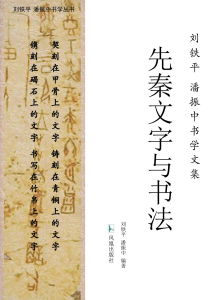 刘铁平 潘振中书学丛书
刘铁平 潘振中书学文集
先秦文字与书法
契刻在甲骨上的文字 铸刻在青铜上的文字
镌刻在碣石上的文字 书写在竹帛上的文字
刘铁平 潘振中 编著
凤凰出版社